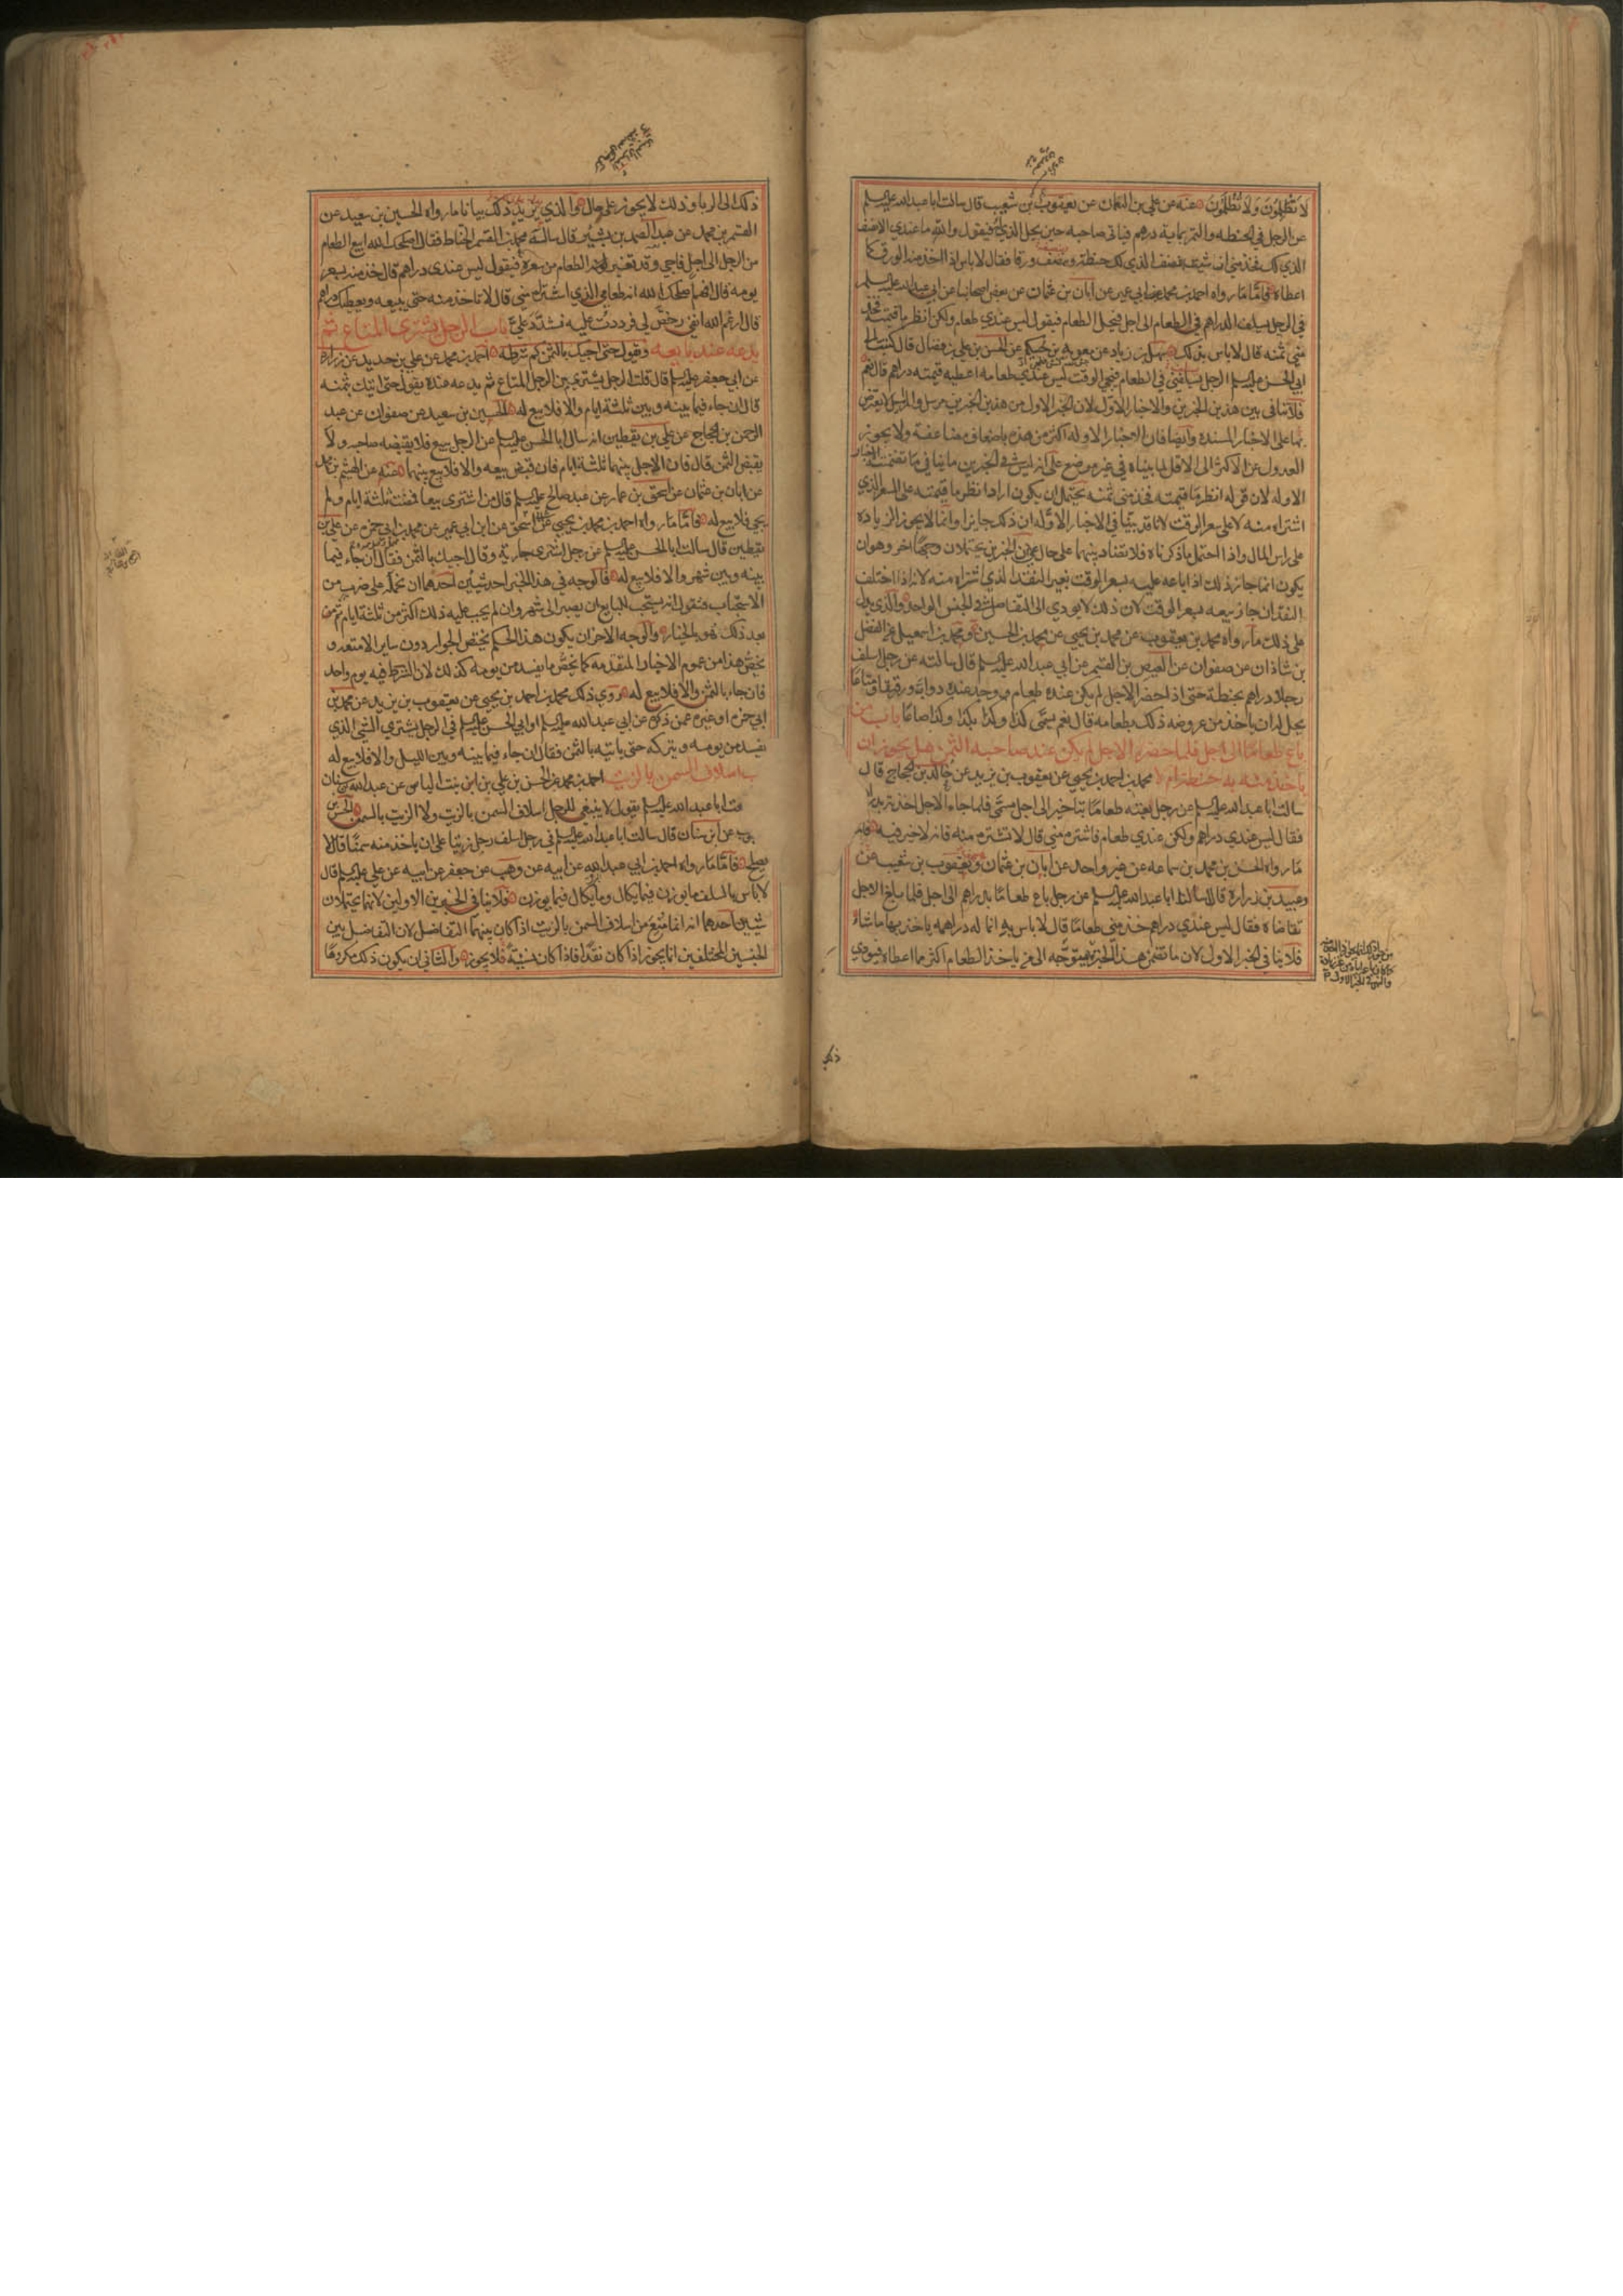 لا تَظْلِمُونَ وَلا تُظْلَمُونَ عنه عن علي بن النعمان عن يعقوب بن شعيب قال سالت ابا عبد الله عليه السلم
عن الرجل في الحنطه والتمر بماية درهم فياتي صاحبه حين يحل الذي له فيقول والله ما عندي الا نصف
الذي لك فخذ مني ان شئت بنصف الذي لك حنطة وبنصف ورقا فقال لا باس اذا اخذ منه الورق كما
اعطاه فاما ما رواه احمد بن محمد عن ابن ابي عمير عن ابان بن عثمان عن بعض اصحابنا عن ابي عبد الله عليه السلم
في الرجل يسلف الدراهم في الطعام الى اجل فيحل الطعام فيقول ليس عندي طعام ولكن انظر ما قيمته فخذ
مني ثمنه قال لا باس بذلك سهل بن زياد عن معوية بن حكيم عن الحسن بن علي بن فضال قال كتبت الى
ابي الحسن عليه السلم الرجل يسلفني في الطعام فيجي الوقت ليس عندي طعامه اعطيه قيمته دراهم قال نعم
فلا تنافي بين هذين الخبرين والاخبار الاول لان الخبر الاول من هذين الخبرين مرسل والمرسل لا يعترض
بها على الاخبار المسنده وايضا فان الاخبار الاوله اكثر من هذه باضعاف مضاعفة ولا يجوز
العدول عن الاكثر الى الاقل لما بيناه في غير موضع على انه ليس في الخبرين ما ينافي ما تضمنته الاخبار
الاوله لان قوله انظر ما قيمته فخذ مني ثمنه يحتمل ان يكون اراد انظر ما قيمته على السعر الذي
اشتراه منه لا على سعر الوقت لانا قد بينا في الاخبار الاوله ان ذلك جايز وانما لا يجوز الزياده
على راس المال واذا احتمل ما ذكرناه فلا تضاد بينهما على حال على ان الخبرين يحتملان وجها اخر وهو ان
يكون انما جاز ذلك اذا باعه عليه بسعر الوقت بغير النقد الذي اشتراه منه لانه اذا اختلف
النقدان جاز بيعه بسعر الوقت لان ذلك لا يودي الى التفاضل في الجنس الواحد والذي يدل
على ذلك ما رواه محمد بن يعقوب عن محمد بن يحيى عن محمد بن الحسين ومحمد بن اسمعيل عن الفضل
بن شاذان عن صفوان عن العيص بن القسم عن ابي عبد الله عليه السلم قال سالته عن رجل اسلف
رجلا دراهم بحنطة حتى اذا حضر الاجل لم يكن عنده طعام ووجد عنده دوابا ورقيقا ومتاعا
يحل له ان ياخذ من عروضه ذلك بطعامه قال نعم يسمى كذا وكذا بكذا وكذا صاعا باب من
باع طعاما الى اجل فلما حضر الاجل لم يكن عند صاحبه الثمن هل يجوز ان
ياخذ منه به حنطة ام لا محمد بن احمد بن يحيى عن يعقوب بن يزيد عن خالد بن الحجاج قال
سالت ابا عبد الله عليه السلم عن رجل بعته طعاما بتاخير الى اجل مسمى فلما جاء الاجل اخذته بدراهمي
فقال ليس عندي دراهم ولكن عندي طعام فاشتره مني قال لا تشتره منه فانه لا خير فيه فاما
ما رواه الحسن بن محمد بن سماعه عن غير واحد عن ابان بن عثمان عن يعقوب بن شعيب عن
وعبيد بن زرارة قال سالنا ابا عبد الله عليه السلم عن رجل باع طعاما بدراهم الى اجل فلما بلغ الاجل
تقاضاه فقال ليس عندي دراهم خذ مني طعاما قال لا باس به انما له دراهمه ياخذ بها ما شاء
فلا ينافي الخبر الاول لان ما تضمن هذا الخبر متوجه الى من ياخذ الطعام اكثر مما اعطاه فيودي
ذلك
ذلك الى الربا وذلك لا يجوز على حال والذي يزيد ذلك بيانا ما رواه الحسين بن سعيد عن
القسم بن محمد عن عبد الصمد بن بشير قال ساله محمد بن القسم الحناط فقال اصلحك الله ابيع الطعام
من الرجل الى اجل فاجي وقد تغير الطعام من سعره فيقول ليس عندي دراهم قال خذ منه بسعر
يومه قال افهم اصلحك الله انه طعامي الذي اشتراه مني قال لا تاخذ منه حتى يبيعه ويعطيك دراهم
قال ارغم الله انفي رخص لي فرددت عليه فشدد علي باب الرجل يشتري المتاع ثم
يدعه عند بايعه ويقول حتى اجيك بالثمن كم شرطه احمد بن محمد عن علي بن حديد عن زرارة
عن ابي جعفر عليه السلم قال قلت الرجل يشتري من الرجل المتاع ثم يدعه عنده يقول حتى اتيك بثمنه
قال ان جاء فيما بينه وبين ثلثة ايام والا فلا بيع له الحسين بن سعيد عن صفوان عن عبد
الرحمن بن الحجاج عن علي بن يقطين انه سال ابا الحسن عليه السلم عن الرجل يبيع فلا يقبضه صاحبه ولا
يقبض الثمن قال فان الاجل بينهما ثلثة ايام فان قبض بيعه والا فلا بيع بينهما عنه عن الهيثم بن محمد
عن ابان بن عثمان عن اسحق بن عمار عن عبد صالح عليه السلم قال من اشترى بيعا فمضت ثلثة ايام ولم
يجي فلا بيع له فاما ما رواه احمد بن محمد بن يحيى عن اسحق عن ابن ابي عمير عن محمد بن ابي حمزه عن علي بن
يقطين قال سالت ابا الحسن عليه السلم عن رجل اشترى جارية وقال اجيك بالثمن فقال ان جاء فيما
بينه وبين شهر والا فلا بيع له فالوجه في هذا الخبر احد شيئين احدهما ان نحمله على ضرب من
الاستحباب فنقول انه يستحب للبايع ان يصبر الى شهر وان لم يجب عليه ذلك اكثر من ثلثة ايام ثم من
بعد ذلك فهو بالخيار والوجه الاخر ان يكون هذا الحكم يختص الجوار دون ساير الامتعه و
نخص هذا من عموم الاخبار المتقدمه كما نخص ما يفسد من يومه كذلك لان الشرط فيه يوم واحد
فان جاء بالثمن والا فلا بيع له روى ذلك محمد بن احمد بن يحيى عن يعقوب بن يزيد عن محمد بن
ابي حمزه او غيره عمن ذكره عن ابي عبد الله عليه السلم او ابي الحسن عليه السلم في الرجل يشتري الشي الذي
يفسد من يومه ويتركه حتى ياتيه بالثمن فقال ان جاء فيما بينه وبين الليل والا فلا بيع له
ب اسلاف السمن بالزيت احمد بن محمد عن الحسن بن علي بن ابن بنت الياس عن عبد الله بن سنان
ابا عبد الله عليه السلم يقول لا ينبغي للرجل اسلاف السمن بالزيت ولا الزيت بالسمن الحسن
عن ابن سنان قال سالت ابا عبد الله عليه السلم في رجل اسلف رجل زيتا على ان ياخذ منه سمنا قال لا
يصلح فاما ما رواه احمد بن ابي عبد الله عن ابيه عن وهب عن جعفر عن ابيه عن علي عليه السلم قال
لا باس بالسلف ما يوزن فيما يكال وما يكال فيما يوزن فلا ينافي الخبرين الاولين لانهما يحتملان
شيئين احدهما انه انما منع من اسلاف السمن بالزيت اذا كان بينهما التفاضل لان التفاضل بين
الجنسين المختلفين انما يجوز اذا كان نقدا فاذا كان نسيئة فلا يجوز والثاني ان يكون ذلك مكروها